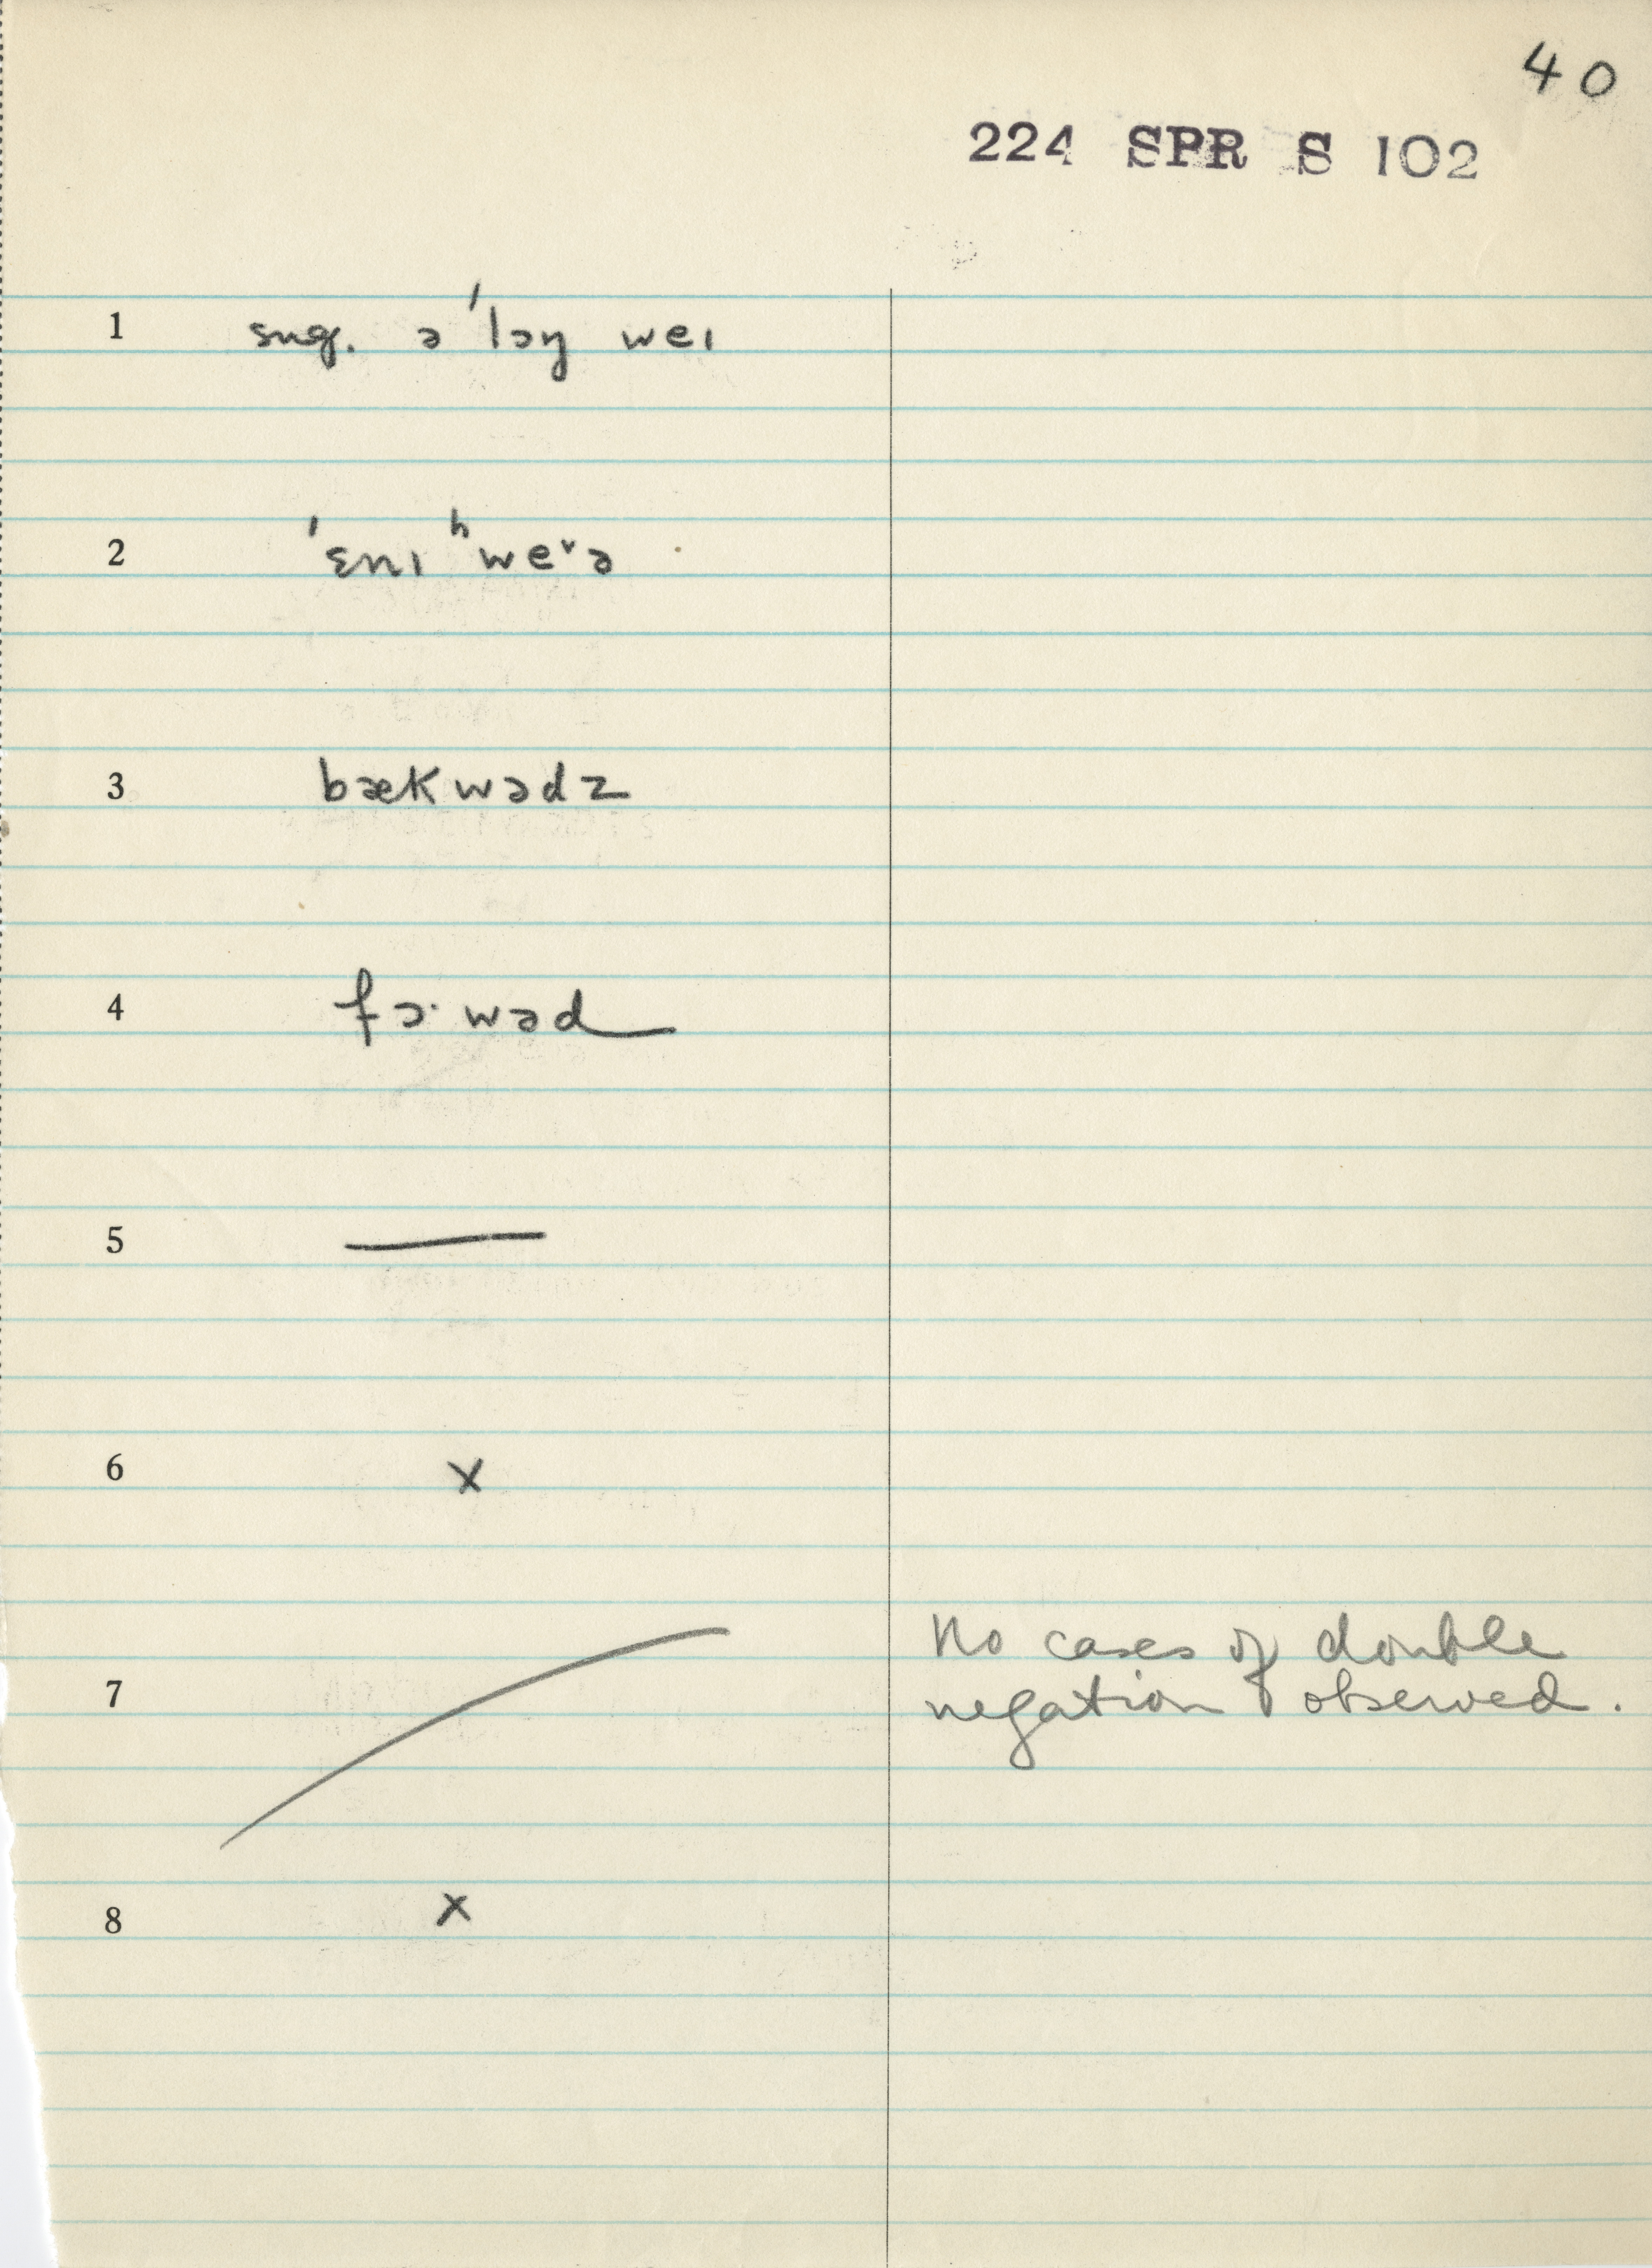 40
224 SPR S 102
1 sug. ə ˈlɔŋ weɪ
2 ˈɛnɪ ʰweᵛə
3 bækwədz
4 fɔ·wəd
5 —
6 x
7 No cases of double
negation observed.
8 x